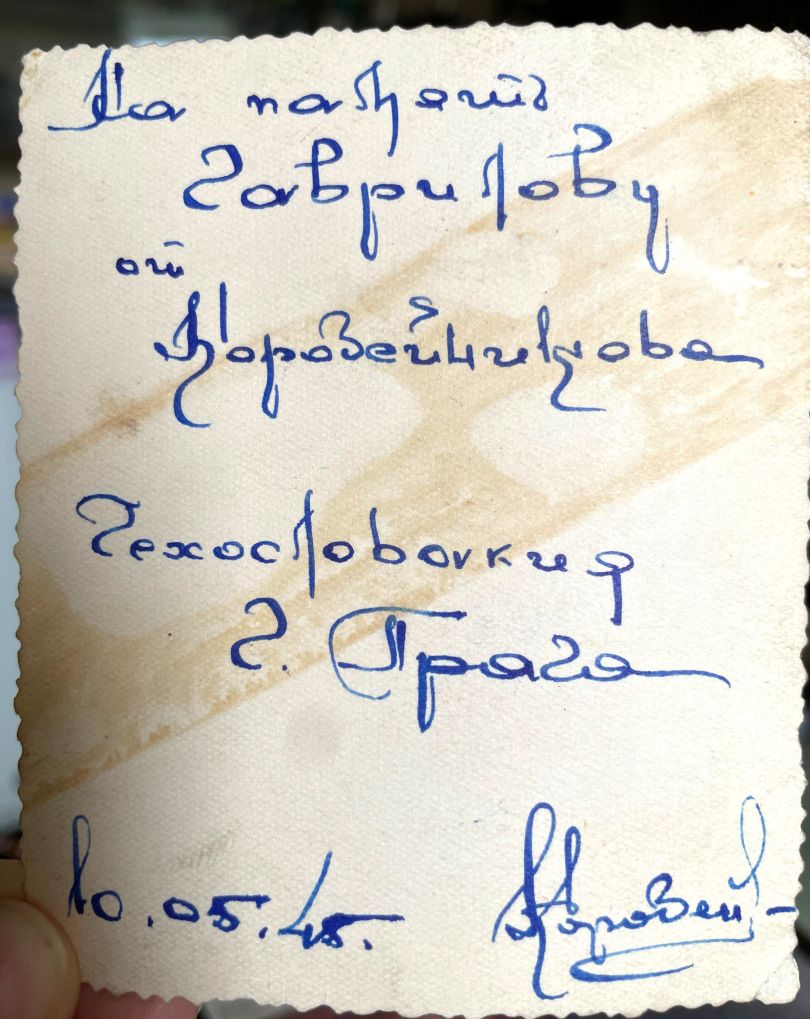 На память
Гаврилову
от
Коровейникова
Чехословакия
г. Прага
10.05.45. Коровей-